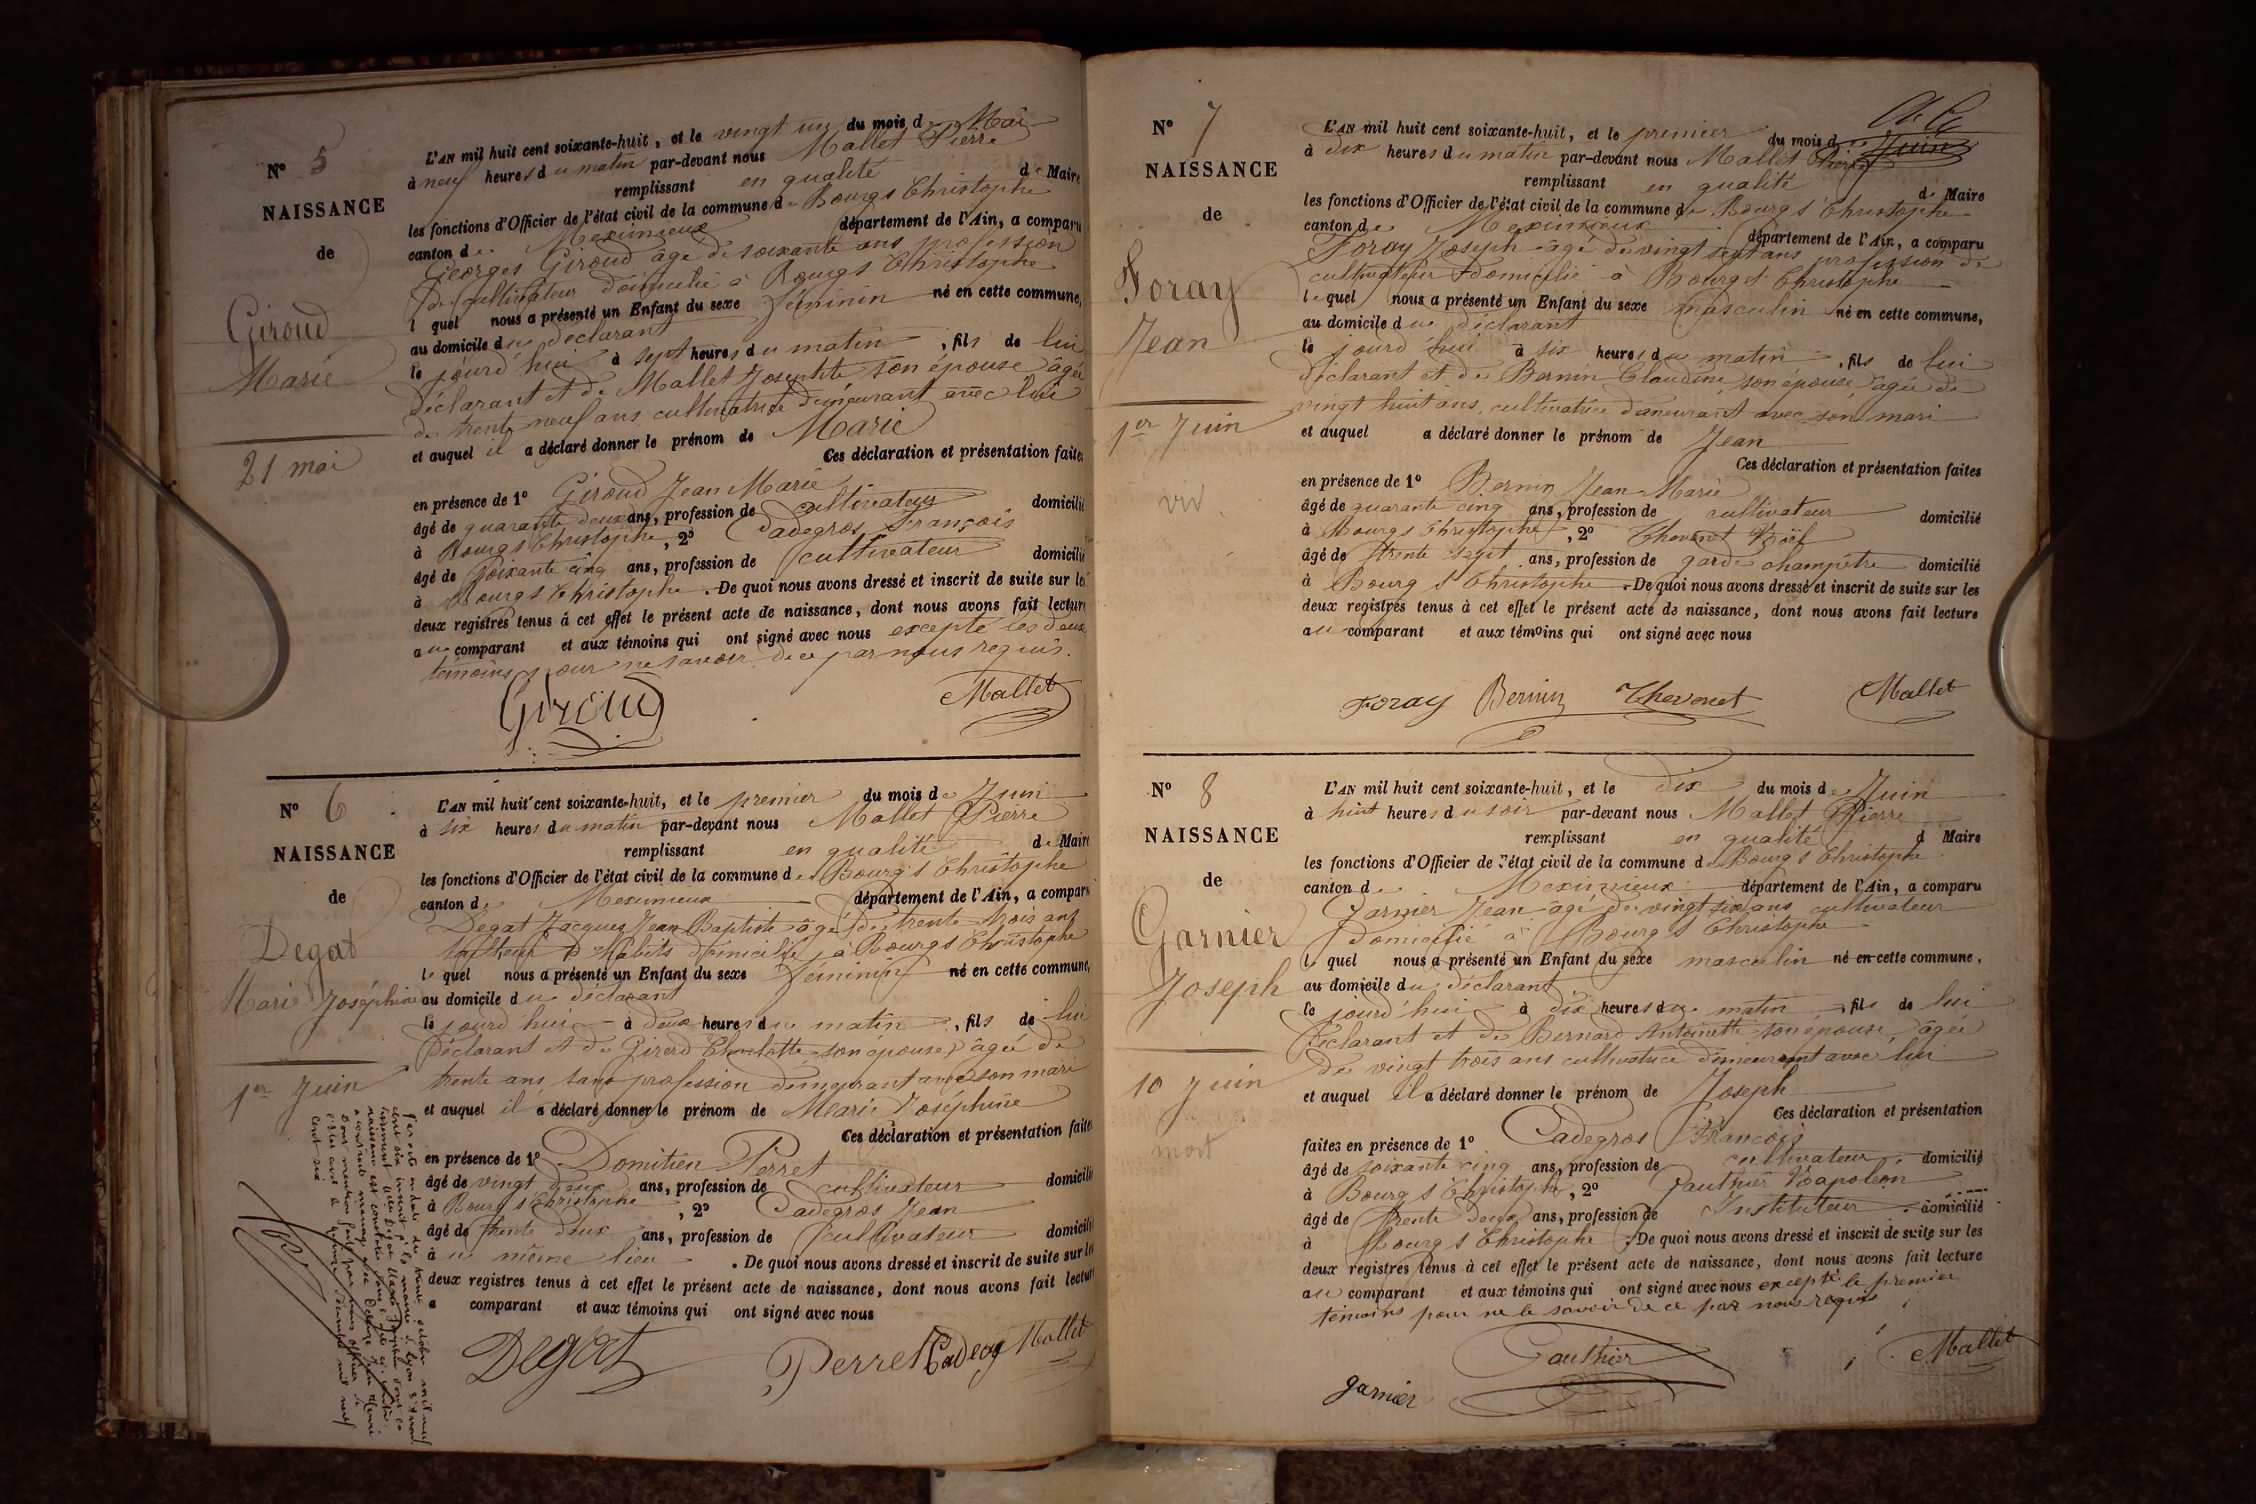 N° 5
NAISSANCE
de
Giroud
Marie
21 mai
L'AN mil huit cent soixante-huit, et le vingt un du mois de Mai
à neuf heures du matin par-devant nous Mallet Pierre
remplissant en qualité de Maire
les fonctions d'Officier de l'état civil de la commune de Bourg St Christophe
canton de Meximieux département de l'Ain, a comparu
Georges Giroud âgé de soixante ans profession
de cultivateur domicilié à Bourg St Christophe
l quel nous a présenté un Enfant du sexe féminin né en cette commune,
au domicile du déclarant
le jourd'hui à sept heures du matin, fils de lui
déclarant et de Mallet Josephte son épouse âgée
de trente neuf ans cultivatrice demeurant avec lui
et auquel il a déclaré donner le prénom de Marie
Ces déclaration et présentation faites
en présence de 1° Giroud Jean Marie
âgé de quarante deux ans, profession de cultivateur domicilié
à Bourg St Christophe, 2° Cadegros François
âgé de soixante cinq ans, profession de cultivateur domicilié
à Bourg St Christophe. De quoi nous avons dressé et inscrit de suite sur les
deux registres tenus à cet effet le présent acte de naissance, dont nous avons fait lecture
au comparant et aux témoins qui ont signé avec nous excepté les deux
témoins pour ne savoir de ce par nous requis.
Giroud Mallet
N° 6
NAISSANCE
de
Degat
Marie Joséphine
1er Juin
L'AN mil huit cent soixante-huit, et le premier du mois de Juin
à six heures du matin par-devant nous Mallet Pierre
remplissant en qualité de Maire
les fonctions d'Officier de l'état civil de la commune de Bourg St Christophe
canton de Meximieux département de l'Ain, a comparu
Degat Jacques Jean Baptiste âgé de trente trois ans
tailleur d'habits domicilié à Bourg St Christophe
le quel nous a présenté un Enfant du sexe féminin né en cette commune,
au domicile du déclarant
le jourd'hui à deux heures du matin, fils de lui
déclarant et de Girerd Charlotte son épouse âgée de
trente ans sans profession demeurant avec son mari
et auquel il a déclaré donner le prénom de Marie Joséphine
Ces déclaration et présentation faites
en présence de 1° Domitien Perret
âgé de vingt deux ans, profession de cultivateur domicilié
à Bourg St Christophe, 2° Cadegros Jean
âgé de trente deux ans, profession de cultivateur domicilié
à u même lieu. De quoi nous avons dressé et inscrit de suite sur les
deux registres tenus à cet effet le présent acte de naissance, dont nous avons fait lecture
a comparant et aux témoins qui ont signé avec nous
Degat Perret Mallet
N° 7
NAISSANCE
de
Foray
Jean
1er Juin
viv
L'AN mil huit cent soixante-huit, et le premier du mois de Juin
à dix heures du matin par-devant nous Mallet Pierre
remplissant en qualité de Maire
les fonctions d'Officier de l'état civil de la commune de Bourg St Christophe
canton de Meximieux département de l'Ain, a comparu
Foray Joseph âgé de vingt sept ans profession de
cultivateur domicilié à Bourg St Christophe
le quel nous a présenté un Enfant du sexe masculin né en cette commune,
au domicile du déclarant
le jourd'hui à six heures du matin, fils de lui
déclarant et de Bernin Claudine son épouse âgée de
vingt huit ans, cultivatrice demeurant avec son mari
et auquel a déclaré donner le prénom de Jean
Ces déclaration et présentation faites
en présence de 1° Bernin Jean Marie
âgé de quarante cinq ans, profession de cultivateur domicilié
à Bourg St Christophe, 2° Thevenet Noël
âgé de trente sept ans, profession de garde champêtre domicilié
à Bourg St Christophe. De quoi nous avons dressé et inscrit de suite sur les
deux registres tenus à cet effet le présent acte de naissance, dont nous avons fait lecture
au comparant et aux témoins qui ont signé avec nous
Foray Bernin Thevenet Mallet
N° 8
NAISSANCE
de
Garnier
Joseph
10 Juin
mort
L'AN mil huit cent soixante-huit, et le dix du mois de Juin
à huit heures du soir par-devant nous Mallet Pierre
remplissant en qualité d Maire
les fonctions d'Officier de l'état civil de la commune de Bourg St Christophe
canton de Meximieux département de l'Ain, a comparu
Garnier Jean âgé de vingt six ans cultivateur
domicilié à Bourg St Christophe
le quel nous a présenté un Enfant du sexe masculin né en cette commune,
au domicile du déclarant
le jourd'hui à dix heures du matin, fils de lui
déclarant et de Bernard Antoinette son épouse, âgée
de vingt trois ans cultivatrice demeurant avec lui
et auquel il a déclaré donner le prénom de Joseph
Ces déclaration et présentation
faites en présence de 1° Cadegros François
âgé de soixante cinq ans, profession de cultivateur, domicilié
à Bourg St Christophe, 2° Gauthier Napoléon
âgé de trente deux ans, profession de Instituteur domicilié
à Bourg St Christophe. De quoi nous avons dressé et inscrit de suite sur les
deux registres tenus à cet effet le présent acte de naissance, dont nous avons fait lecture
au comparant et aux témoins qui ont signé avec nous excepté le premier
témoins pour ne le savoir de ce par nous requis
Gauthier Mallet
garnier